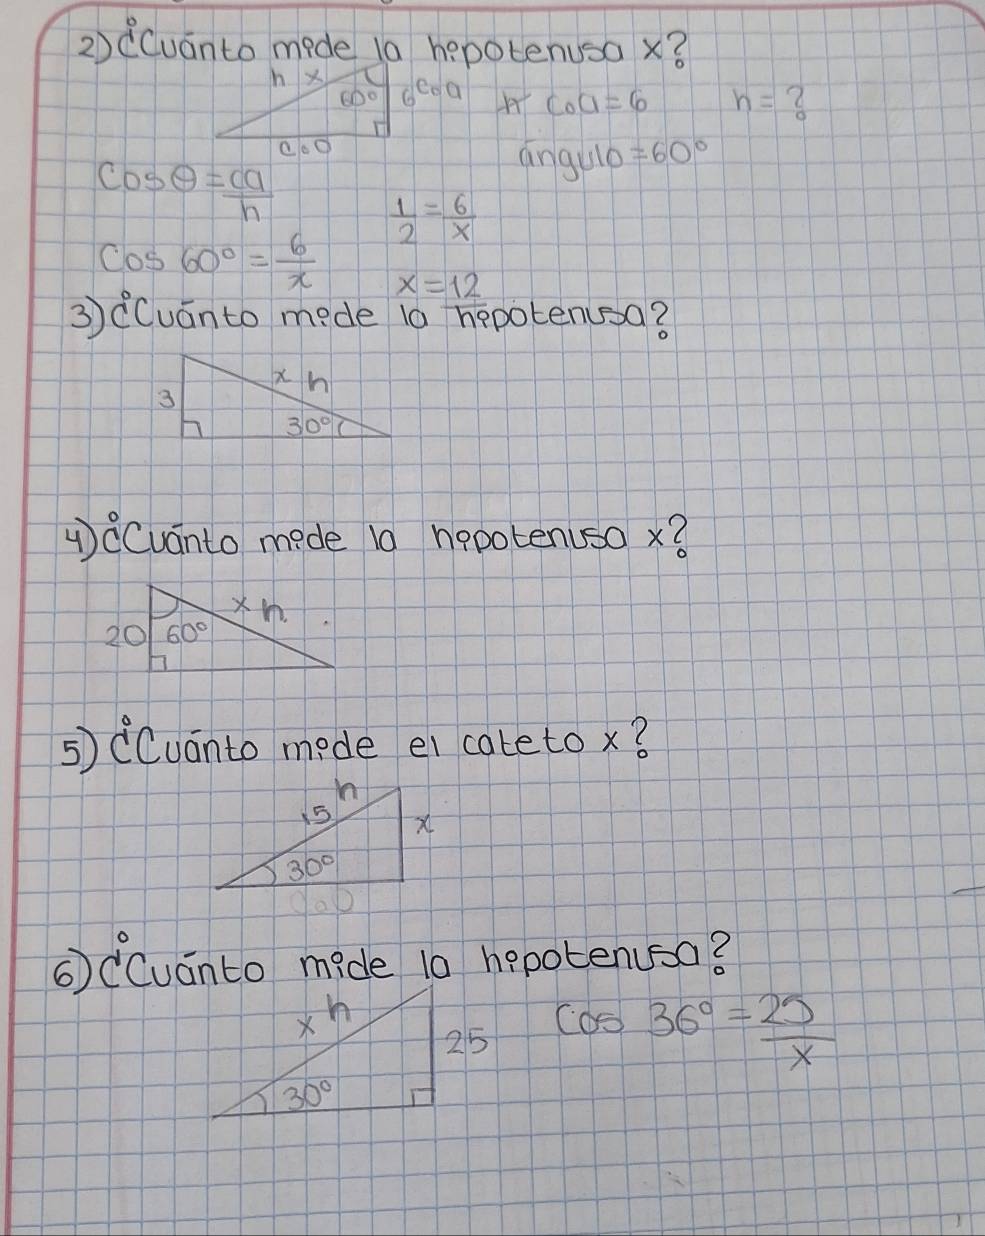 2) ¿Cuánto mide la hipotenusa x?
h x
60° 6 coa coa = 6 h = ?
c.o
ángulo = 60°
Cos θ = ca/h
1/2 = 6/x
Cos 60° = 6/x
x = 12
3) ¿Cuánto mide la hipotenusa?
x h
3
30°
4) ¿Cuánto mide la hipotenusa x?
x h
20 60°
5) ¿Cuánto mide el cateto x?
h
15 x
30°
6) ¿Cuánto mide la hipotenusa?
x h 25 Cos 36° = 25/x
30°